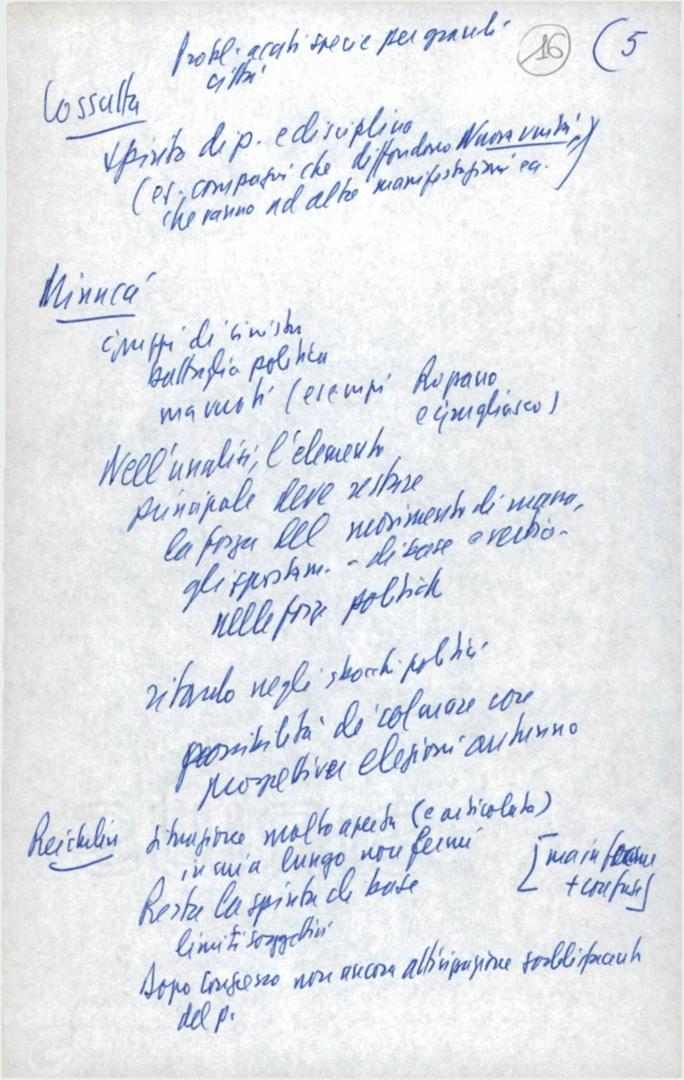 Probl. acuti specie per grandi
città
16 (5
Cossutta
spirito di p. e disciplina
(es. compagni che diffondono Nuova unità,
che vanno ad altre manifestazioni ec.)
Minucci
gruppi di sinistra
battaglia politica
ma vuoti (esempi
e Grugliasco)
Nell'analisi, l'elemento
principale deve restare
la forza del movimento di massa,
gli spostam. - di base e vertici -
nelle forze politiche
ritardo negli sbocchi politici
possibilità di colmare con
prospettiva elezioni autunno
Reichlin situazione molto aperta (e articolata)
in cui a lungo non fermi
[ma in forme
+ confuse]
Resta la spinta di base
limiti soggettivi
Dopo Congresso non ancora soddisfacente
del p.